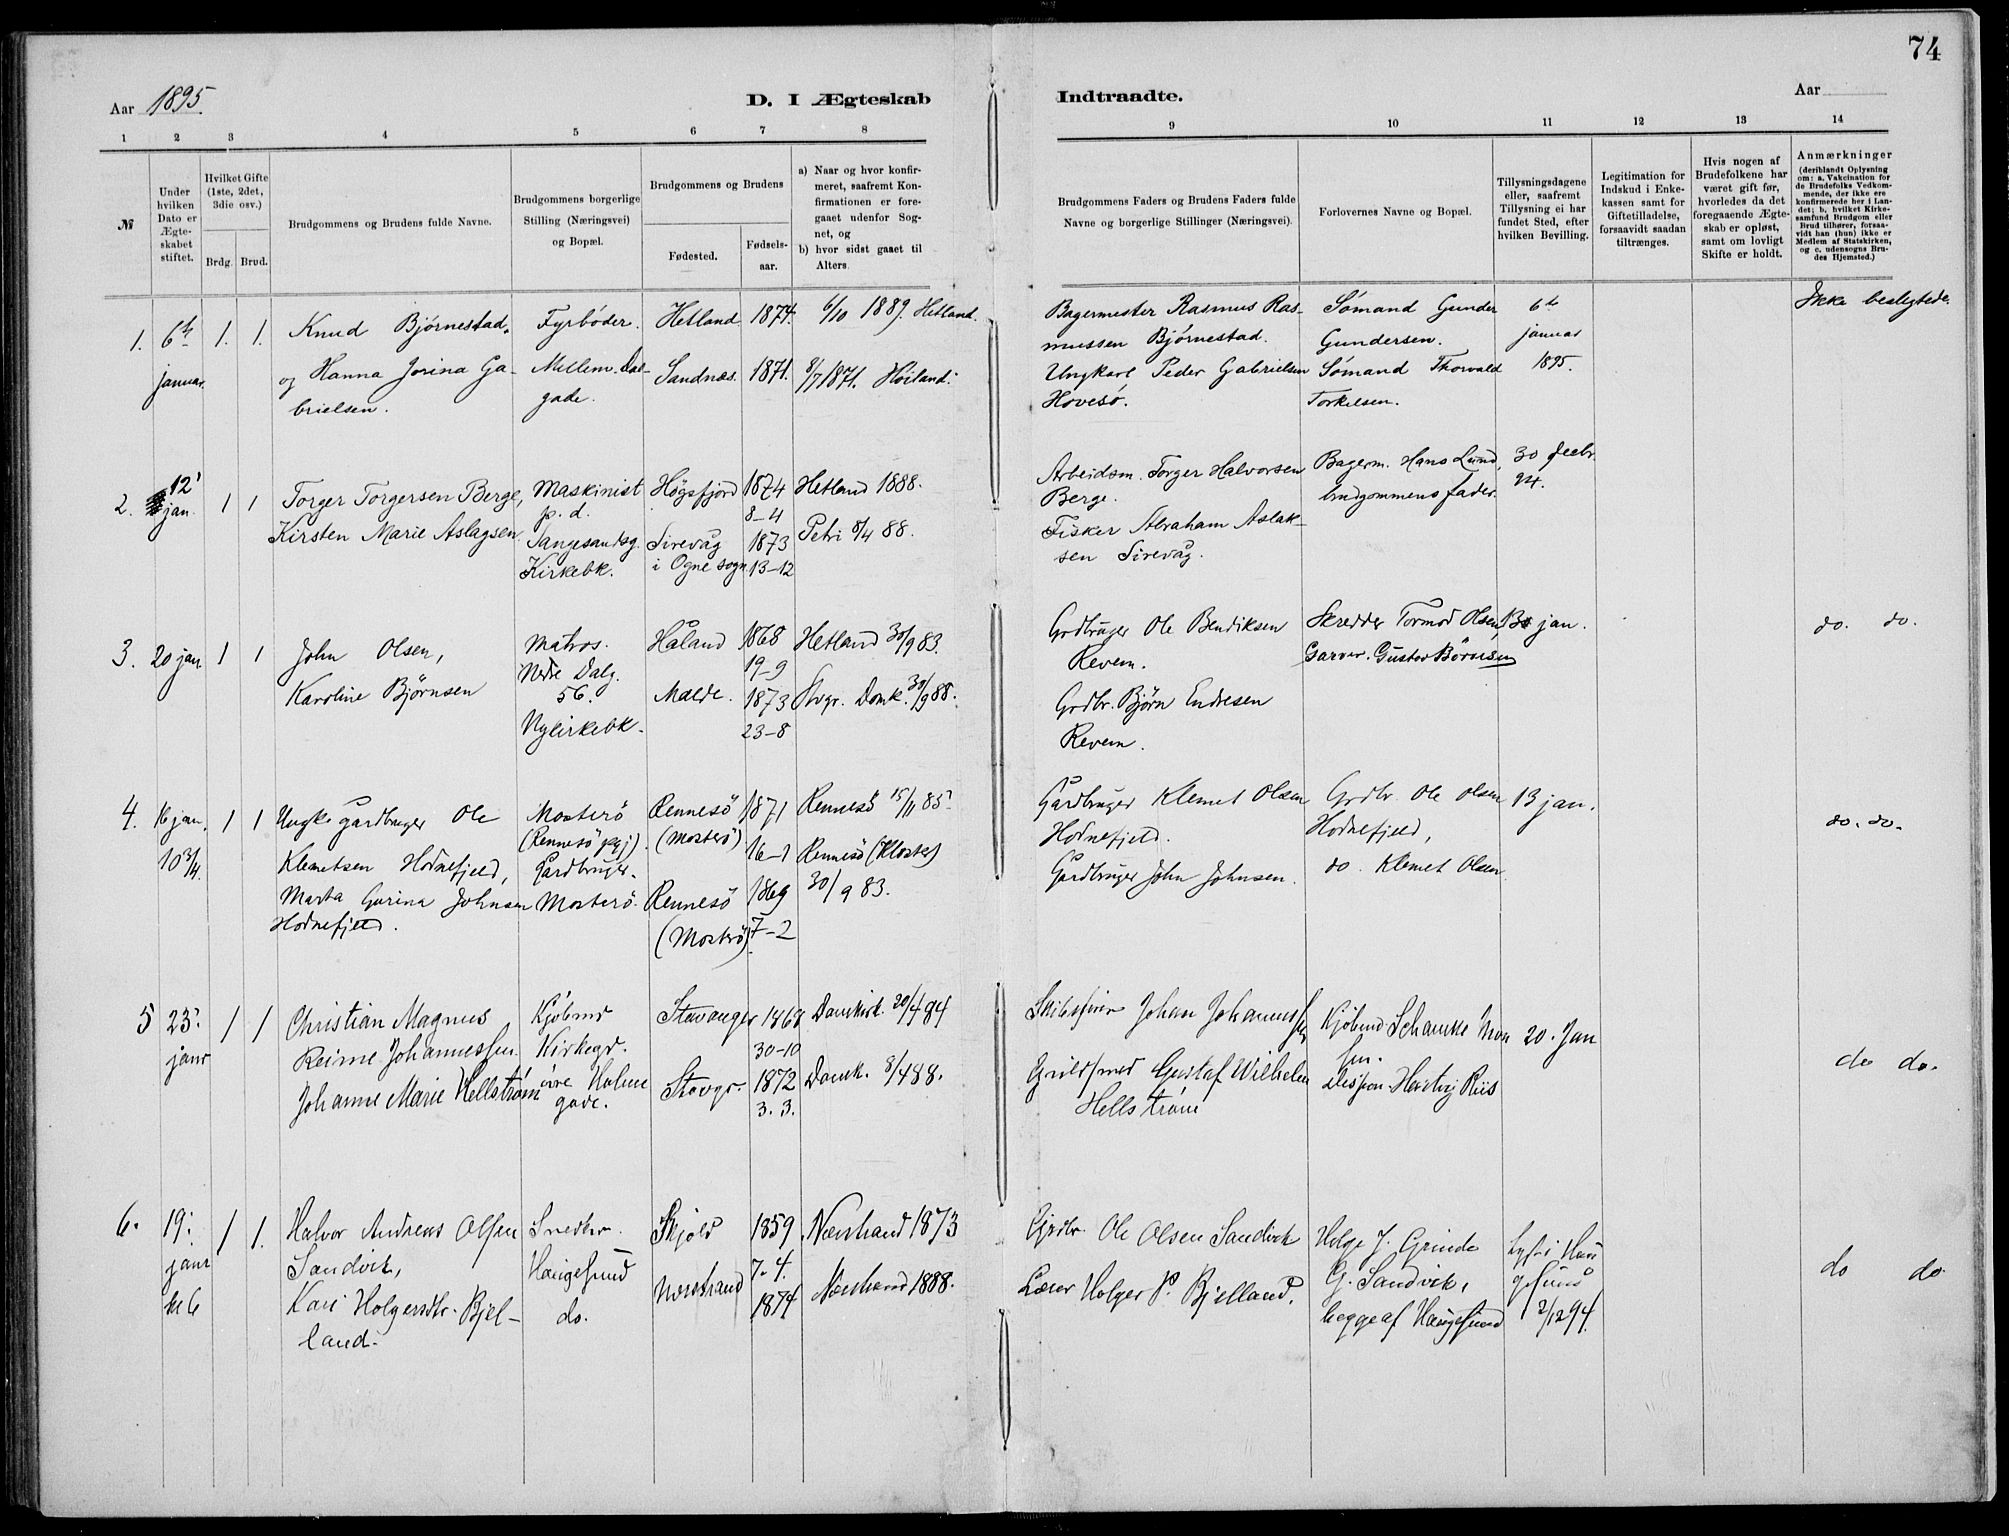 74
Aar 1895.
D. I Ægteskab
Indtraadte.
Aar
1 2 3 4 5 6 7 8
9 10 11 12 13 14
№
Under hvilken Dato er Ægteskabet stiftet.
Hvilket Gifte (1ste, 2det, 3die osv.)
Brdg. Brud.
Brudgommens og Brudens fulde Navne.
Brudgommens borgerlige Stilling (Næringsvei) og Bopæl.
Brudgommens og Brudens
Fødested.
Fødsels-aar.
a) Naar og hvor konfirmeret, saafremt Konfirmationen er foregaaet udenfor Sognet, og
b) hvor sidst gaaet til Alters
Brudgommens Faders og Brudens Faders fulde Navne og borgerlige Stillinger (Næringsvei).
Forlovernes Navne og Bopæl.
Tillysningsdagene eller, saafremt Tillysning ei har fundet Sted, efter hvilken Bevilling.
Legitimation for Indskud i Enkekassen samt for Giftetilladelse, forsaavidt saadan tiltrænges.
Hvis nogen af Brudefolkene har været gift før, hvorledes da det foregaaende Ægteskab er opløst, samt om lovligt Skifte er holdt.
Anmærkninger (deriblandt Oplysning om: a. Vakcination for de Brudefolks Vedkommende, der ikke ere konfirmerede her i Landet; b. hvilket Kirkesamfund Brudgom eller Brud tilhører, forsaavidt han (hun) ikke er Medlem af Statskirken, og c. udensogns Brudes Hjemsted.)
1. 6te januar. 1. 1.
Knud Bjørnestad.
og Hanna Jorina Ga-
brielsen.
Fyrbøder.
Mellem Dal-
gade.
Hetland 1874. 6/10 1889. Hetland.
Sandnæs. 1871. 8/7 1871. Høiland.
Bagermester Rasmus Ras-
mussen Bjørnestad.
Ungkarl Peder Gabrielsen
Hovesø.
Sømand Gunder
Gundersen.
Sømand Thorvald
Torkelsen.
6te
januar
1895.
Ikke beslegtede.
2. 12' jan. 1 1
Torger Torgersen Berge,
Kirsten Marie Aslagsen.
Maskinist
p. d.
Kirkebk.
Högsfjord 1874
8–4
Sirevåg 1873
i Ogne sogn 13–12
Hetland 1888.
Petri 8/4 88.
Arbeidsm. Torger Halvorsen
Berge.
Fisker Abraham Aslak-
sen Sirevåg.
Bagerm. Hans Lund,
brudgommens fader.
30 decbr
94.
3. 20 jan. 1 1
John Olsen,
Karoline Bjørnsen
Matros.
Nedre Dalg.
56.
Nykirkebk.
Håland 1868
19–9
Malde. 1873
23–8
Hetland 30/9 83.
Stvgr. Domk. 30/9 88.
Grdbruger Ole Bendiksen
Revem.
Grdbr. Bjørn Endresen
Revem.
Skredder Tormod Olsen
Garver. Gustav Børnsen
13 jan.
do. do.
4. 16 jan. 10 3/4. 1 1
Ungk. gardbruger Ole
Klemetsen Hodnefjeld,
Marta Gurina Johnsen
Hodnefjeld.
Mosterö
(Rennesö pgj)
Gardbruger.
Mosterö.
Rennesö 1871
(Mosterö) 16–1
Rennesö 1869
(Mosterö) 7–2
Rennesö 15/11 85.
Rennesö (Kloster)
30/9 83.
Gardbruger Klemet Olsen
Hodnefjeld.
Gardbruger John Johnsen.
Grdbr. Ole Olsen
Hodnefjeld,
do. Klemet Olsen
13 jan.
do. do.
5 23. janr 1 1
Christian Magnus
Reime Johannessen.
Johanne Marie Hellstrøm
Kjøbmd
Kirkegr.
øvre Holme
gade.
Stavanger 1868
30–10
Stavgr. 1872
3. 3.
Domkirk. 20/4 84
Domk. 8/4 88.
Skibsfører Johan Johannessen
Guldsmed Gustaf Wilhelm
Hellstrøm
Kjøbmd Schancke Mon
sen.
Dispon. Hartvig Riis
20. Jan
do do.
6. 19. janr kl 6 1 1.
Halvor Andreas Olsen
Sandvik,
Kari Holgersdtr. Bjel-
land.
Snedker
Haugesund
do.
Skjold 1859
7–4.
Nerstrand 1874
Nærstrand 1873
Nærstrand 1888.
Gjrdbr. Ole Olsen Sandvik
Lærer Holger P. Bjelland.
Helge J. Grinde
G. Sandvik,
begge af Haugesund
lyst i Hau
gesund
2/12 94.
do do